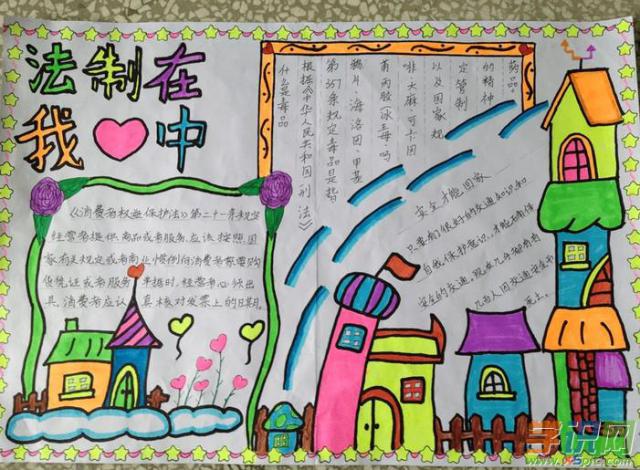 法制在
我❤中
《消费者权益保护法》第二十一条规定
经营者提供商品或者服务,应该按照国
家有关规定或者商业惯例向消费者索要购
货凭证或者服务单据时,经营者必须出
具,消费者应认真核对发票上的日期。
什么是毒品。
根据《中华人民共和国刑法》
第357条规定毒品是指
鸦片、海洛因、甲基
苯丙胺(冰毒、吗
啡大麻可卡因
以及国家规
定管制
的精神
药品。
安全才能回家
只要有很好的交通知识和
自我保护意识,才能
安全的交通,现在